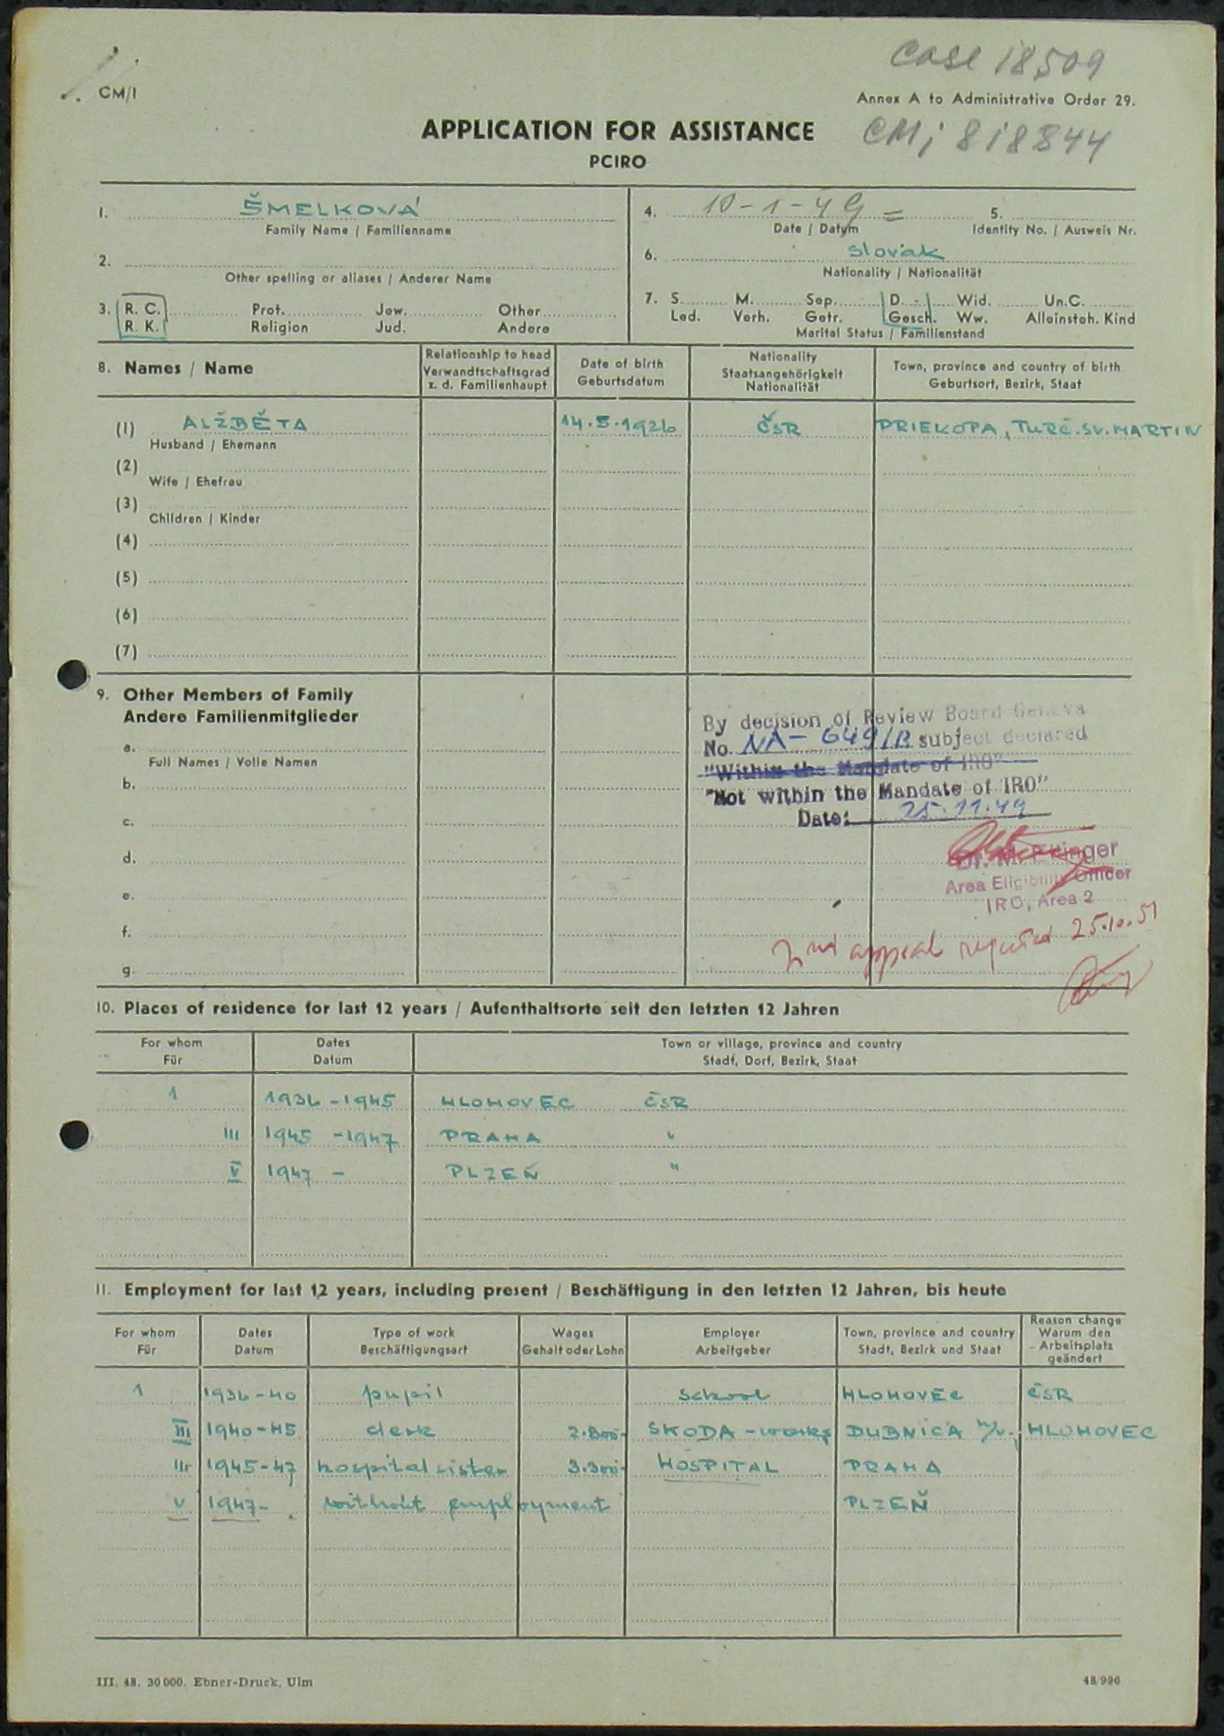 Case 18509
CM/I
Annex A to Administrative Order 29.
APPLICATION FOR ASSISTANCE
CM/ 818844
PCIRO
1. ŠMELKOVÁ
Family Name / Familienname
4. 10-1-49 =
Date / Datum
5.
Identity No. / Ausweis Nr.
2.
Other spelling or aliases / Anderer Name
6. Slovak
Nationality / Nationalität
3. R. C. Prot. Jew. Other
R. K. Religion Jud. Andere
7. S. M. Sep. D. Wid. Un.C.
Led. Verh. Getr. Gesch. Ww. Alleinsteh. Kind
Marital Status / Familienstand
8. Names / Name
Relationship to head
Verwandtschaftsgrad
z. d. Familienhaupt
Date of birth
Geburtsdatum
Nationality
Staatsangehörigkeit
Nationalität
Town, province and country of birth
Geburtsort, Bezirk, Staat
(1) ALŽBĚTA 14.5.1926 ČSR PRIEKOPA, TURČ.SV.MARTIN
Husband / Ehemann
(2)
Wife / Ehefrau
(3)
Children / Kinder
(4)
(5)
(6)
(7)
9. Other Members of Family
Andere Familienmitglieder
a.
Full Names / Volle Namen
b.
c.
d.
e.
f.
g.
By decision of Review Board Geneva
No. NA-649/B subject declared
"Within the Mandate of IRO"
"Not within the Mandate of IRO"
Date: 25.11.49
Area Eligibility Officer
IRO, Area 2
2nd appeal 25.10.51
10. Places of residence for last 12 years / Aufenthaltsorte seit den letzten 12 Jahren
For whom
Für
Dates
Datum
Town or village, province and country
Stadt, Dorf, Bezirk, Staat
1 1936-1945 HLOHOVEC ČSR
III 1945-1947 PRAHA "
V 1947 - PLZEŇ "
11. Employment for last 12 years, including present / Beschäftigung in den letzten 12 Jahren, bis heute
For whom
Für
Dates
Datum
Type of work
Beschäftigungsart
Wages
Gehalt oder Lohn
Employer
Arbeitgeber
Town, province and country
Stadt, Bezirk und Staat
Reason change
Warum den
Arbeitsplatz
geändert
1 1936-40 pupil school HLOHOVEC ČSR
III 1940-45 clerk 2.800- SKODA-works DUBNICA n/V., HLOHOVEC
III 1945-47 hospital sister 3.300- HOSPITAL PRAHA
V 1947- without employment PLZEŇ
III. 48. 30000. Ebner-Druck, Ulm
48/996